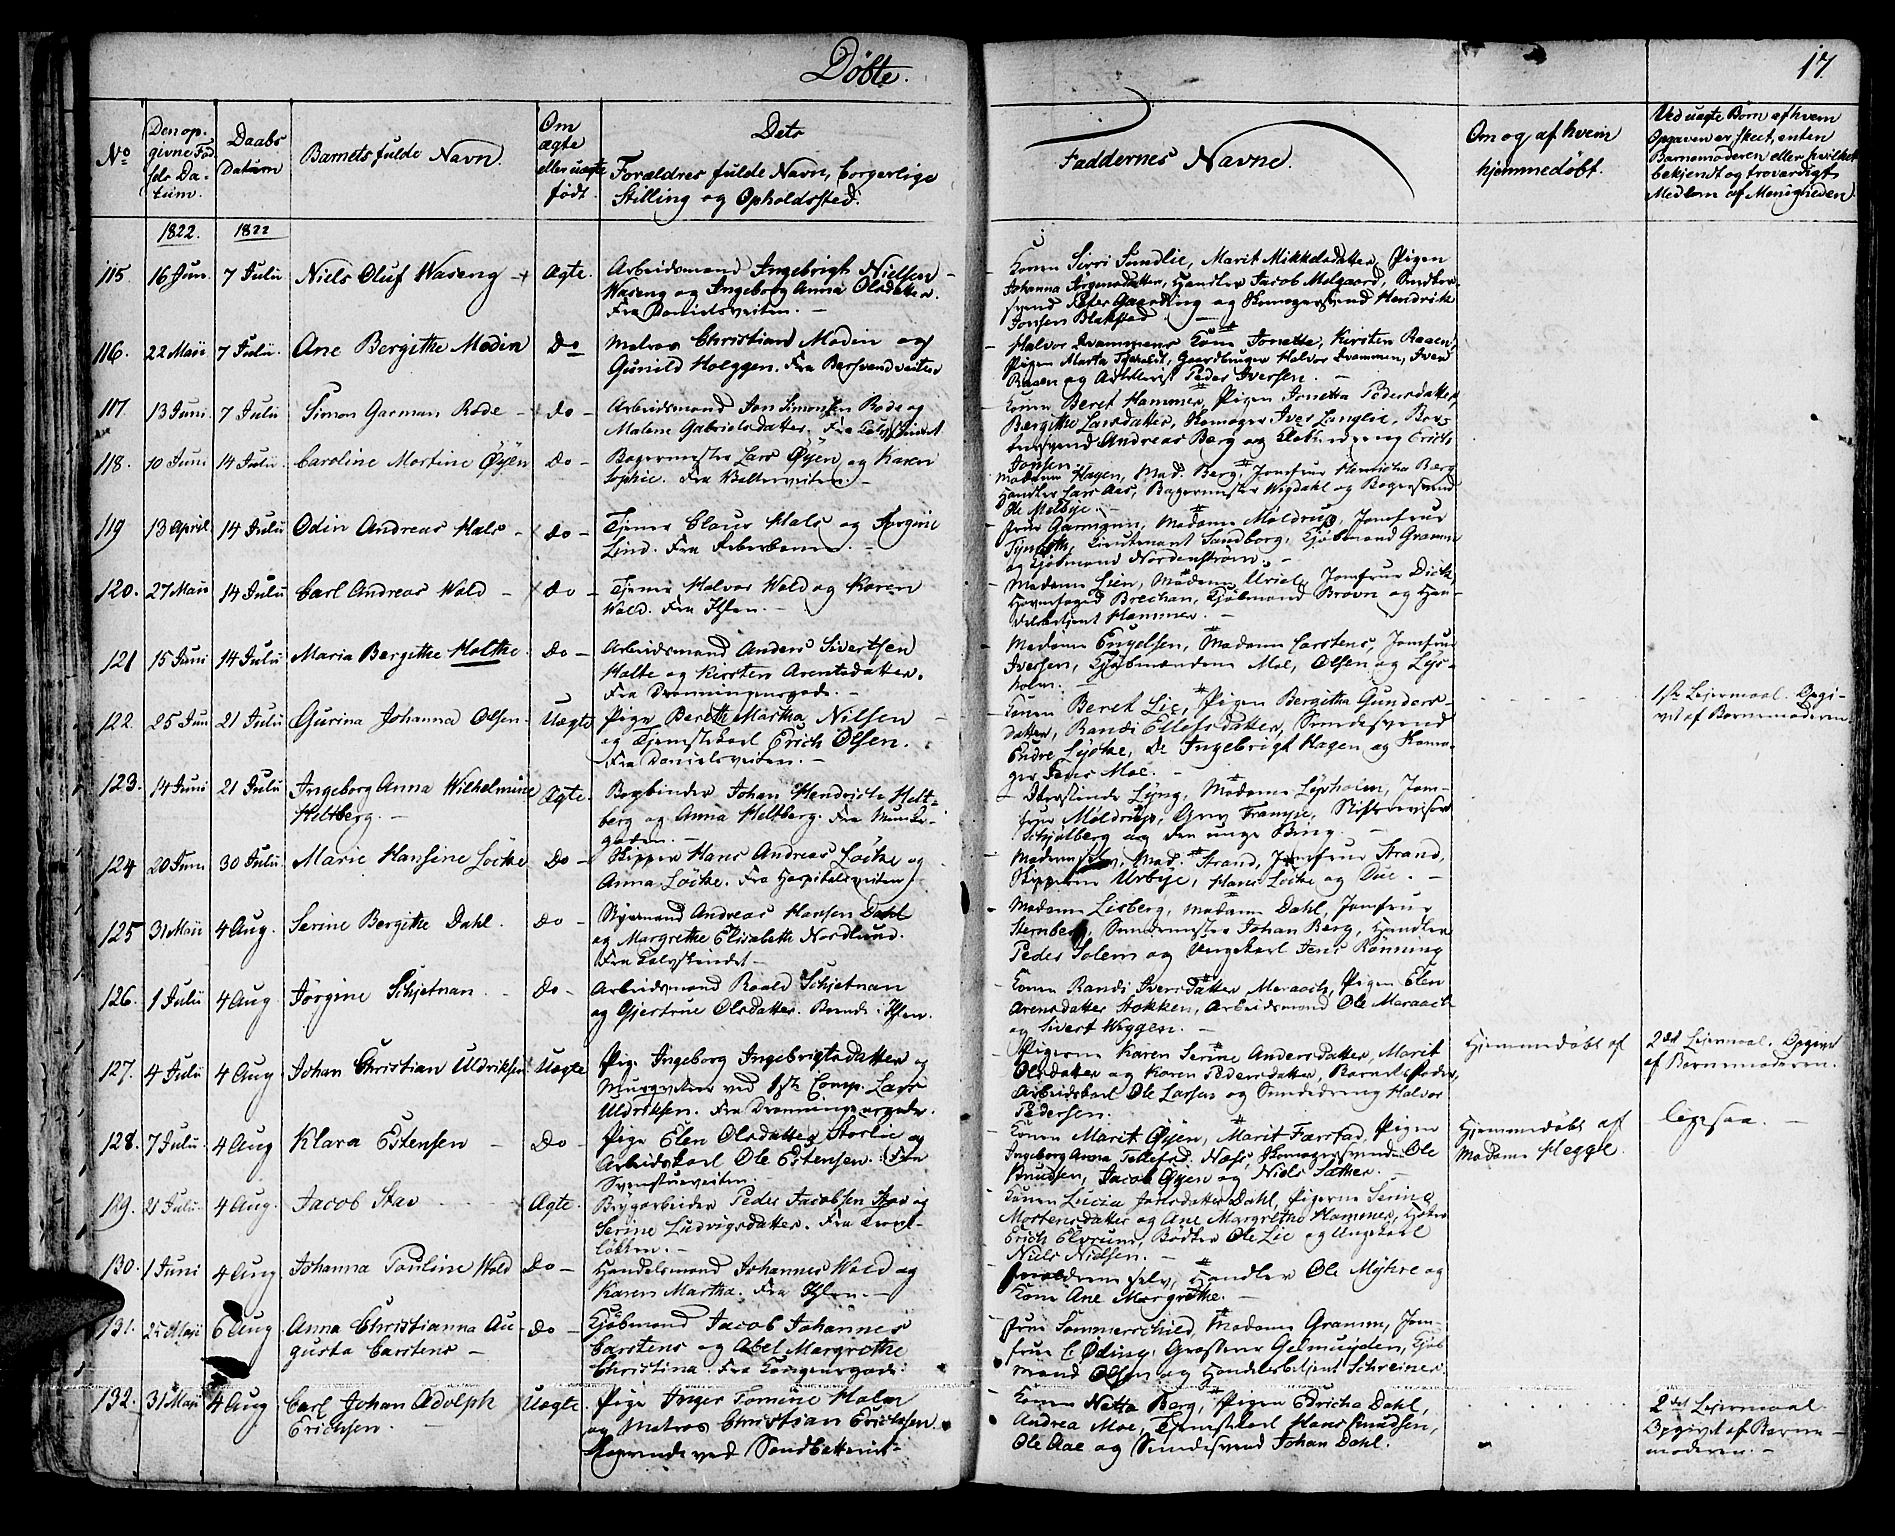 Døbte.
17
No
Den op-
givne Fød-
sels Da-
tum.
Daabs
Datum
Barnets fulde Navn.
Om
ægte
eller uægte
født.
Dets
Forældres fulde Navn, borgerlige
Stilling og Opholdssted.
Faddernes Navne.
Om og af hvem
hjemmedøbt.
Ved uægte Børn af hvem
Opgaven er skeet, enten
Barnemoderen eller hvilket
bekjendt og troværdigt
Medlem af Menigheden
1822.
1822
115 16 Juni 7 Julii Niels Oluf Waseng Ægte. Arbeidsmand Ingebrigt Nielsen
Waseng og Ingeborg Anna Olsdatter.
Fra Danielsveiten.
Konen Sirri Sundlie, Marit Mikkelsdatter, Pigen
Johanna Jørgensdatter, Handler Jacob Melgaard, Smedker-
svend Peter Gaardting og Skomagersvend Hendrik
Jonsen Blakstad.
116. 22 Maii 7 Julii Ane Bergithe Modin Do Matros Christian Modin og
Gunild Holggen. Fra Bersvendveiten
Halvor Svammens Kone Jonette, Kirsten Raaen,
Pigen Marta Tjeraldt, Gaardbruger Halvor Svammen, Iver
Raaen og Artillerist Peder Iversen.
117. 13 Juni 7 Julii Simon Garman Rode Do Arbeidsmand Jon Simonsen Rode og
Malene Gabrielsdatter. Fra Kalvskindet
Konen Beret Hammer, Pigen Jonetta Pedersdatter,
Bergithe Larsdatter, Skomager Iver Langlie,
svend Andreas Berg og Erich
Jonsen.
118. 10 Juni 14 Julii Caroline Martine Øÿen Do Bagermester Lars Øÿen og Karen
Sophie. Fra Vollerveiten.
Madame Hagen, Mad. Berg, Jomfrue Henricha Berg
Handler Lars Aas, Bagermester Wigdahl og Bagersvend
Ole Melbÿe.
119 13 April 14 Julii Odin Andreas Hals Do Tjener Claus Hals og Jørgine
Lind. Fra
Frue Garmann, Madame Møldrup, Jomfrue
Lieutenant Sandborg, Kjøbmand Gramm
og Kjøbmand Nordenstrøm.
120. 27 Maii 14 Julii Carl Andreas Wold Do Tjener Halvor Wold og Karen
Wold. Fra Ihlen.
Madame Lien, Madame Uriel, Jomfrue Dick,
Brechan, Kjøbmand Brovn og Han-
delsbetjent Hammer.
121 15 Juni 14 Julii Maria Bergithe Holthe Do Arbeidsmand Anders Sivertsen
Holte og Kirsten Arentsdatter.
Fra Dronningensgade.
Madame Engelsen, Madame Carstens, Jomfrue
Iversen, Kjøbmændene Moe, Olsen og Lÿs-
holm.
122. 25 Juni 21 Julii Gurina Johanna Olsen Uægte Pige Bereth Martha Nilsen
og Tjenestekarl Erich Olsen.
Fra Danielsveiten.
Konen Beret Lie, Pigen Bergitha Gunders-
datter, Randi Ellefsdatter, Smedesvend
Endre Lÿcke, Do Ingebrigt Hagen og Skoma-
ger Jens Moe.
1ste Leiermaal. Opgi-
vet af Barnemoderen.
123. 14 Juni 21 Julii Ingeborg Anna Wilhelmine
Heltberg. Ægte. Bogbinder Johan Hendrich Helt-
berg og Anna Heltberg. Fra Munke-
gaden.
Oberstinde Lÿng, Madame Lÿsholm, Jom-
frue Møldrup, Grev Frangie, Stiftsrevisor
Schjølberg og den unge Bing.
124 20 Juni 30 Julii Marie Hansine Løcke Do Skipper Hans Andreas Løcke og
Anna Løcke. Fra Hospitalsveiten
Moderen selv, Mad. Strand, Jomfrue Strand,
Skipperne Urbÿe, Hans Løcke og Due.
125 31 Maii 4 Aug. Serine Bergithe Dahl. Do Stÿrmand Andreas Hansen Dahl
og Margrethe Elisabeth Nordlund.
Fra Kalvskindet
Madame Lisberg, Madame Dahl, Jomfrue
Sternberg, Smedemester Johan Berg, Handler
Peder Solem og Ungekarl Jens Rønning
126. 1 Julii 4 Aug Jørgine Schjetnan Do Arbeidsmand Roald Schjetnan
og Gjertrue Olsdatter. Boende i Ihlen.
Konen Randi Iversdatter Meraach, Pigen Elen
Arensdatter Stokken, Arbeidsmand Ole Meraach
og Sivert Wiggen.
127. 4 Julii 4 Aug Johan Christian Uldriksen Uægte Pige Ingeborg Ingebrigtsdatter og
Musqueteer ved 1ste Comp. Lars
Uldriksen. Fra Dronningensgade.
Pigerne Karen Serine Andersdatter, Marit
Olsdatter og Karen Pedersdatter, Barnets Fader,
Arbeidskarl Ole Larsen og Smededreng Halvor
Pedersen.
Hjemmedøbt af
2det Leiermaal. Opgivet
af Barnemoderen.
128. 7 Julii 4 Aug Klara Estensen Do Pige Elen Olsdatter Storlie og
Arbeidskarl Ole Estensen. Fra
Svenstueveiten.
Konen Marit Øÿen, Marit Færstad, Pigen
Ingeborg Anna Tellefsd. Næss, Skomagersvend Ole
Knudsen, Jacob Øÿen og Niels Sæther.
Hjemmedøbt af
Madame Hegge.
ligesaa.
129. 21 Julii 4 Aug. Jacob Stav Ægte. Brÿgarbeider Peder Jacobsen Stav og
Serine Ludvigsdatter. Fra
løkken.
Konen Lucia Jonsdatter Dahl, Pigerne Serine
Mortensdatter og Ane Margrethe Hammer,
Erich Elvrum, Bødker Ole Lie og Ungekarl
Niels Nielsen.
130. 1 Juni 4 Aug Johanna Pauline Wold Do Handelsmand Johannes Wold og
Karen Martha. Fra Ihlen.
Forældrene selv, Handler Ole Mÿhre og
Kone Ane Margrethe.
131. 25 Maii 6 Aug Anna Christianna Au-
gusta Carstens Do Kjøbmand Jacob Johannes
Carstens og Abel Margrethe
Christina. Fra Kongensgade.
Frue Sommerschield, Madame Gramm, Jom-
frue C. Øding, Grosserer Gelmuÿden, Kjøb-
mand Olsen og Handelsbetjent Schreiner
132. 31 Maii 4 Aug Carl Johan Adolph
Erichsen Uægte Pige Inger Tomine Holm
og Matros Christian Erichsen.
Logerende ved Sandbatteriet
Konen Netta Berg, Pigen Edricha Dahl,
Andrea Moe, Tjenestekarl Hans Knudsen,
Ole Aae og Smedesvend Johan Dahl.
2det Leiermaal.
Opgivet af Barne-
moderen.